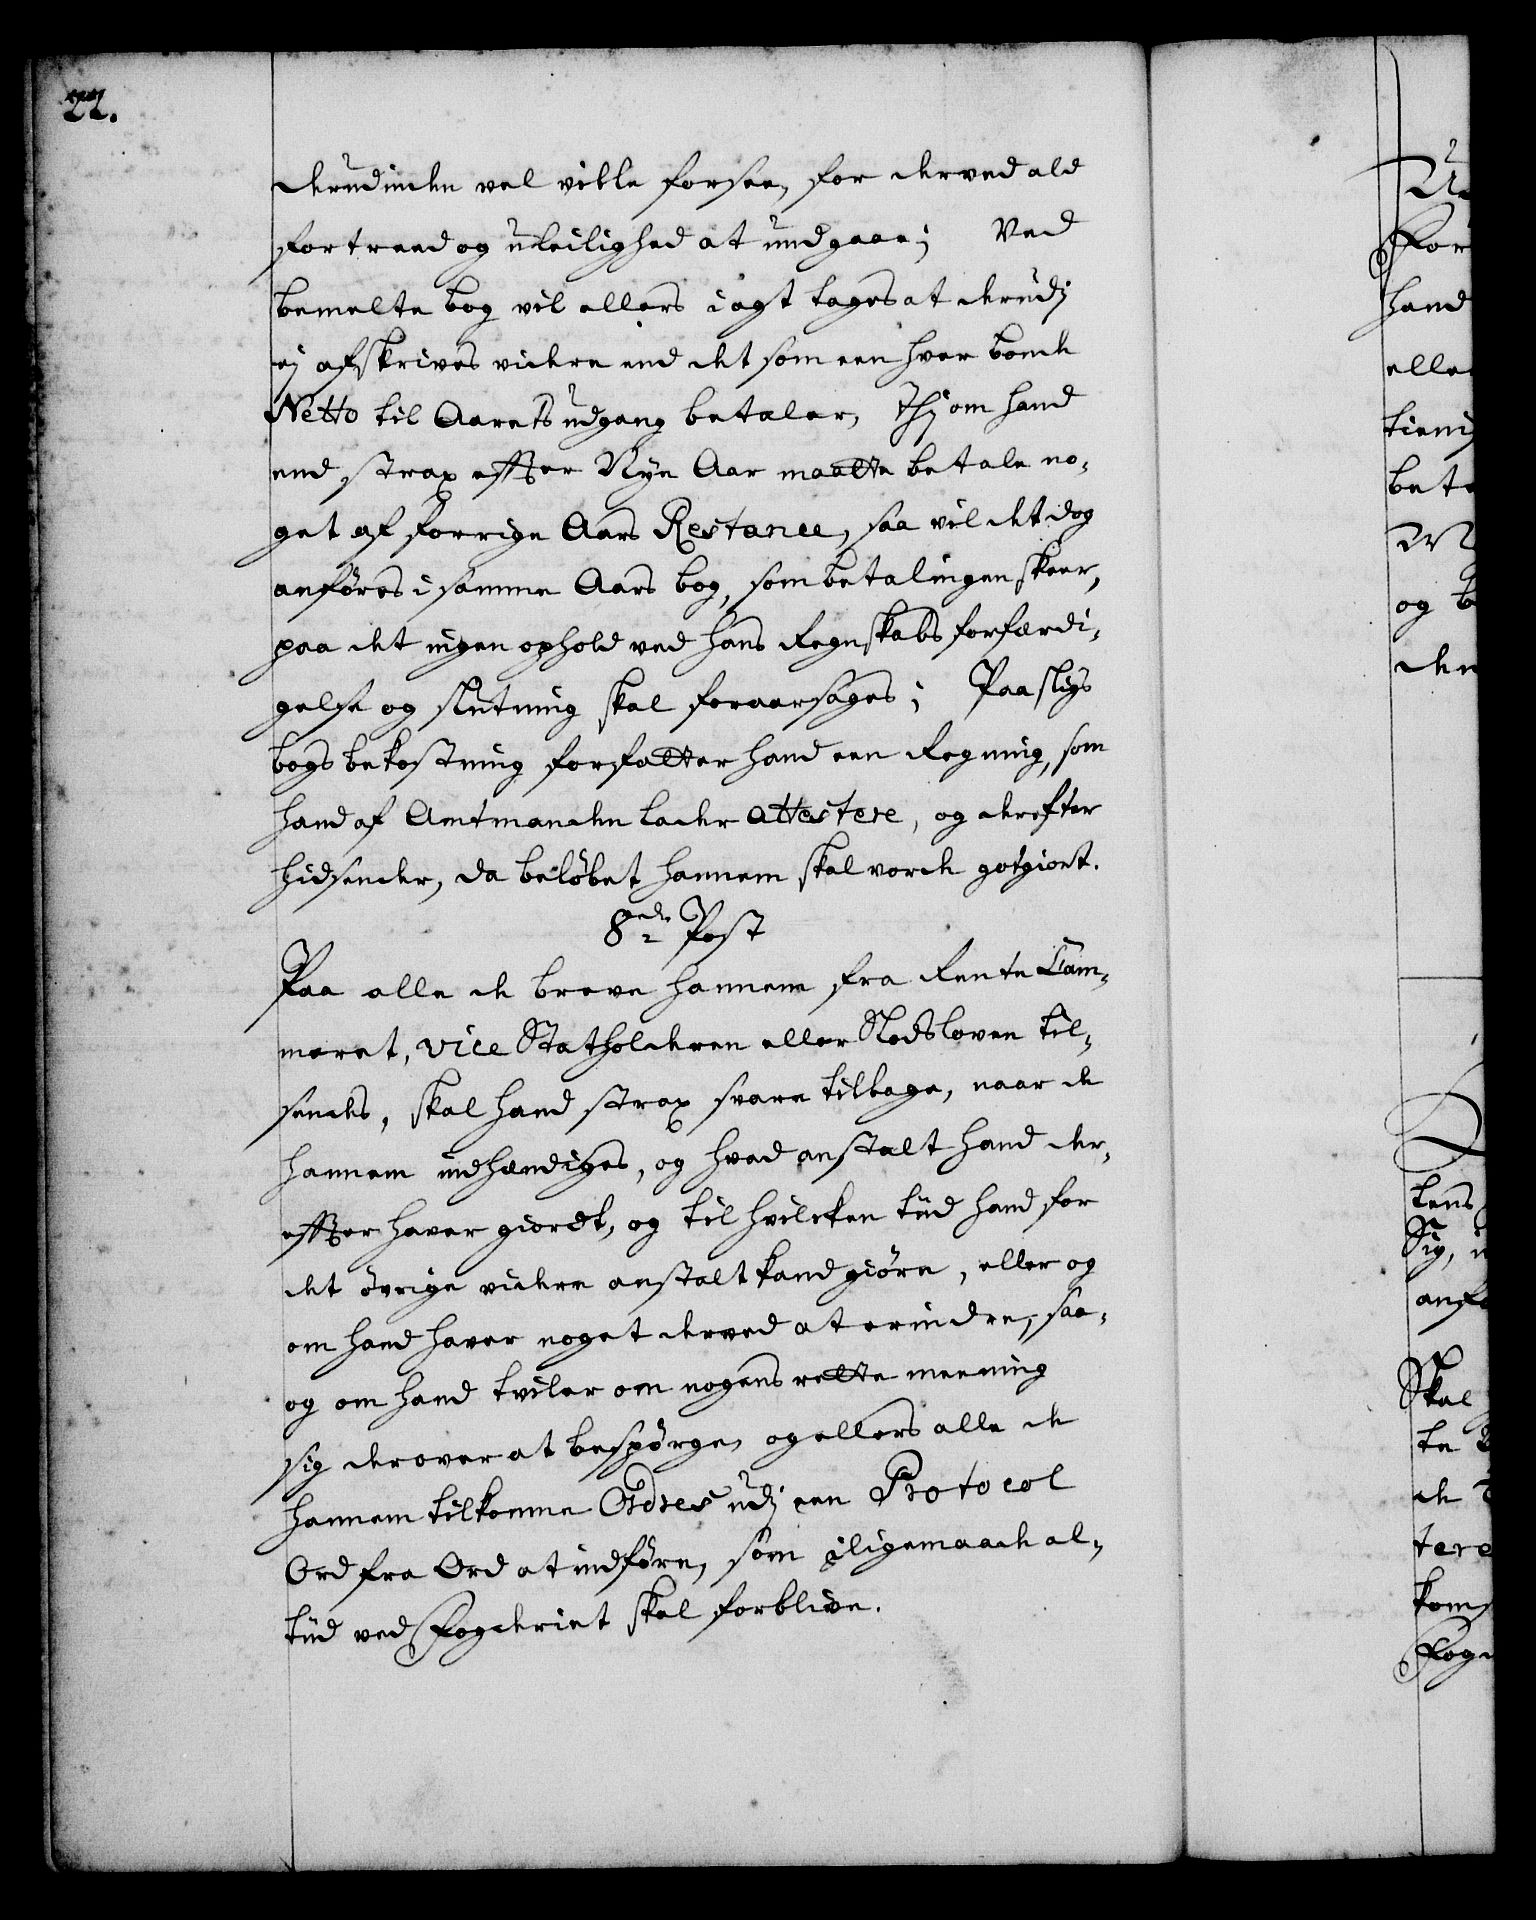 22.
derudinden vel ville forsee, for derved ald
fortreed og uleilighed at undgaae; Ved
bemelte bog vil ellers i agt tages at derudj
ej afskrives videre end det som een hver bonde
Netto til Aarets udgang betaler, Thj om hand
end strax effter Nye Aar maatte betale no-
get af forrige Aars Restance, saa vil det dog
anføres i samme Aars bog, som betalingen skeer,
paa det ingen ophold ved hans Regnskabs forfærdi-
gelse og slutning skal foraarsages; Paa sligs
bogs bekostning forfatter hand een Regning, som
hand af Amtmanden lader attestere, og derefter
hidsender, da beløbet hannem skal vorde gotgiort.
8de Post
Paa alle de breve hannem fra Rente Cam-
meret, vice Statholderen eller Slodsloven til-
sendes, skal hand strax svare tilbage, naar de
hannem indhændiges, og hvad anstalt hand der-
effter haver giordt, og til hvilcken tiid hand for
det øvrige videre anstalt kand giøre, eller og
om hand haver noget derved at erindre, saa-
og om hand tviler om nogens rette meening
sig derover at bespørge, og ellers alle de
hannem tilkomne Ordres udj een Protocol
Ord fra Ord at indføre, som iligemaade al-
tiid ved Fogderiet skal forblive.
U
For
hand
elle
tieni
bete
og b
den
tens
Sig, i
anfø
Skal
te
de
tere
kom
Fog